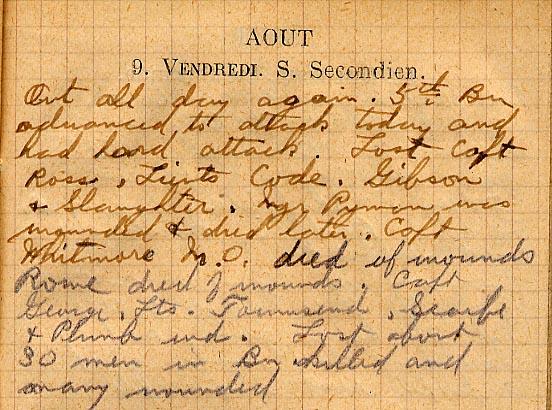 AOUT
9. VENDREDI. S. Secondien.
Out all day again. 5th Bn
advanced to attack today and
had hard attack. Lost Capt
Ross, Lieuts Code, Gibson
& Slaughter. Mgr Pyman was
wounded & died later. Capt
Whitmore M.O. died of wounds
Rome died of wounds. Capt
George, Lts. Townsend, Scarfe
& Plumb wd. Lost about
30 men in Bn killed and
many wounded